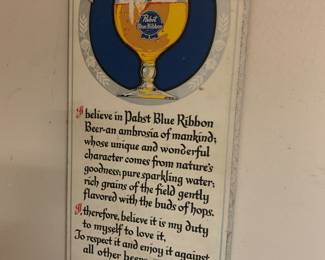 Pabst
Blue Ribbon
I believe in Pabst Blue Ribbon
Beer-an ambrosia of mankind;
whose unique and wonderful
character comes from nature's
goodness; pure sparkling water;
rich grains of the field gently
flavored with the buds of hops.
I, therefore, believe it is my duty
to myself to love it,
To respect it and enjoy it against
all other beers